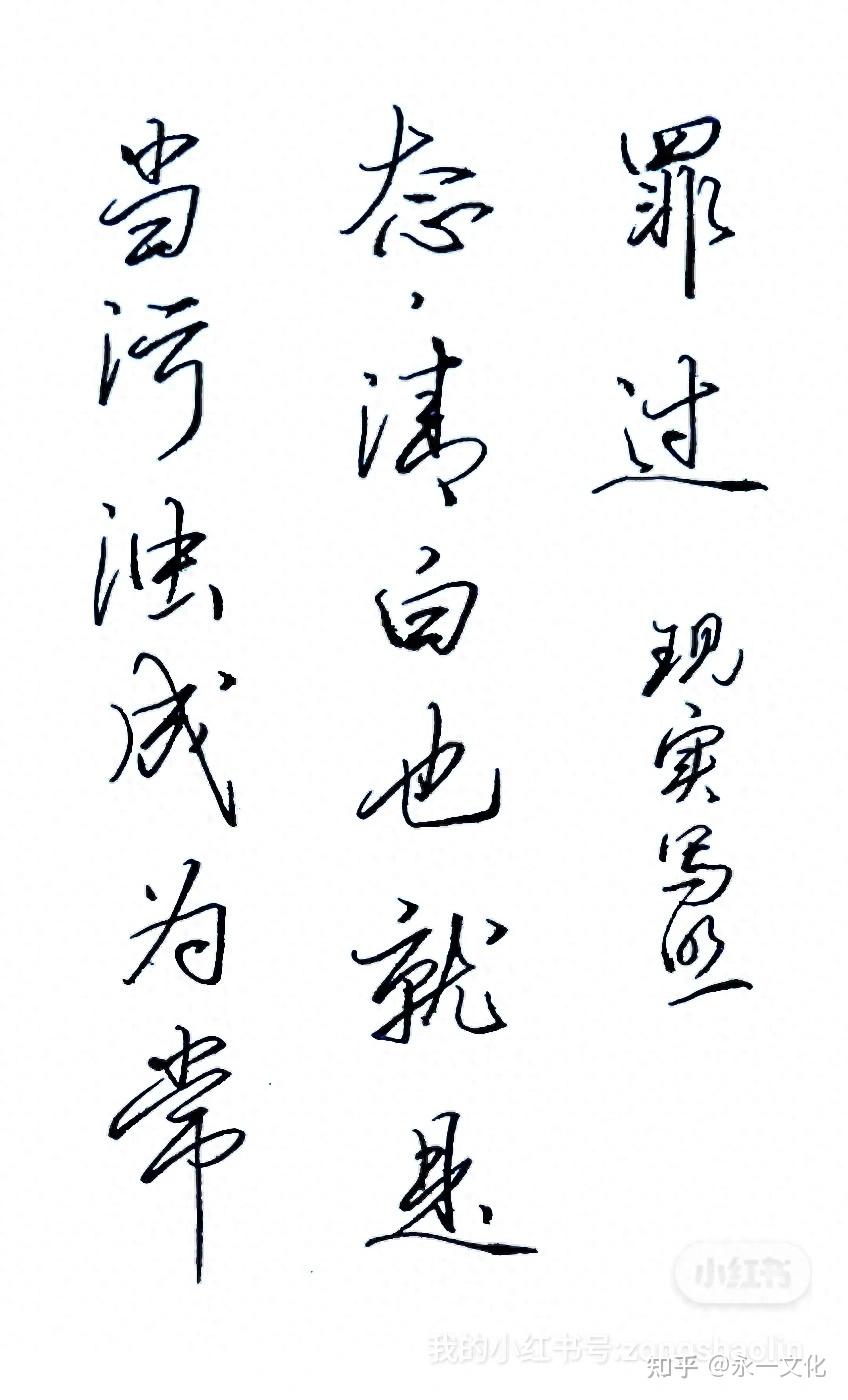 当污浊成为常
态，清白也就是
罪过
现实写照
小红书
我的小红书号:zongshaolin
知乎 @永一文化